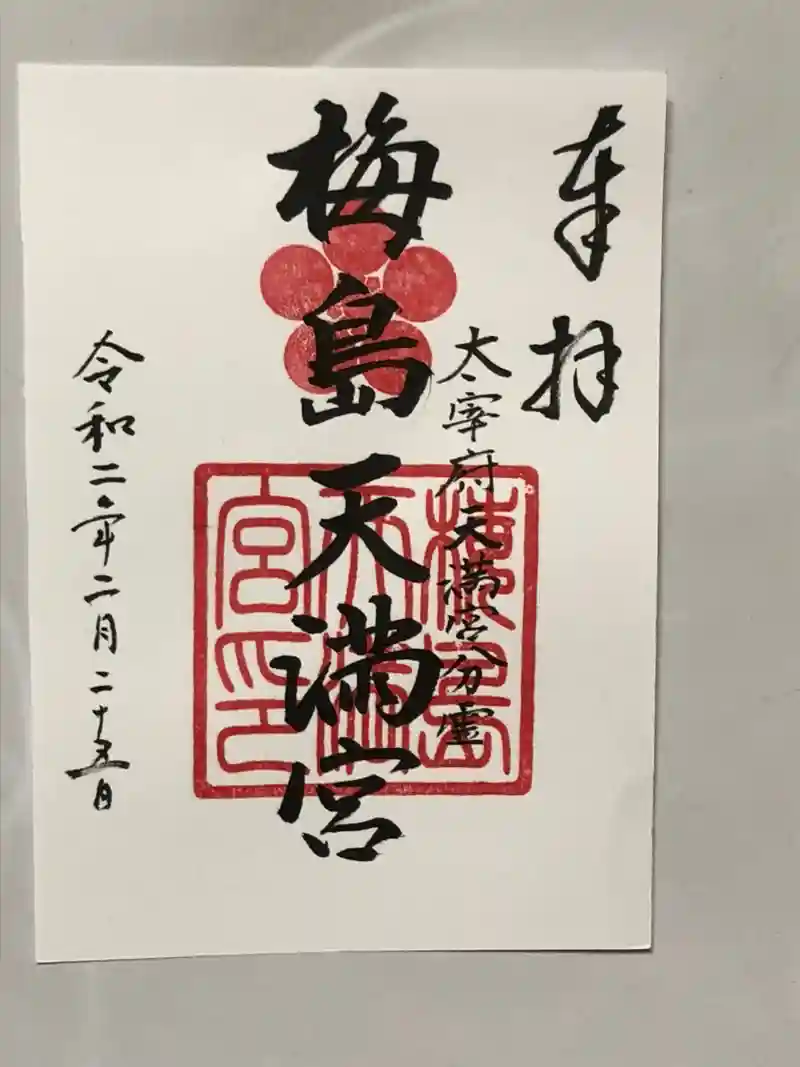 奉拝
太宰府天満宮分霊
梅島天満宮
梅島天満宮印
令和二年二月二十五日